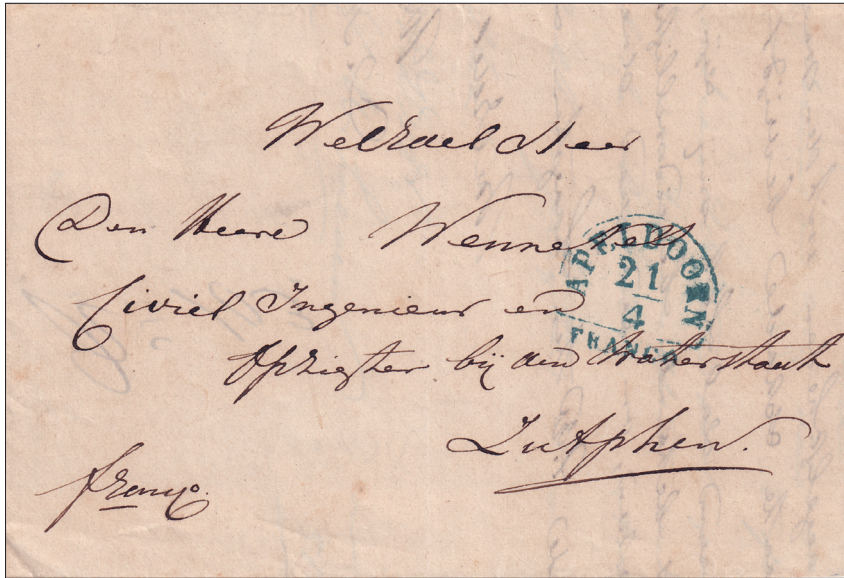 WelEdel Heer
Den Heere
Civiel Ingenieur en
Opzigter bij den Waterstaat
Zutphen.
franco.
APELDOORN
21
4
FRANCO